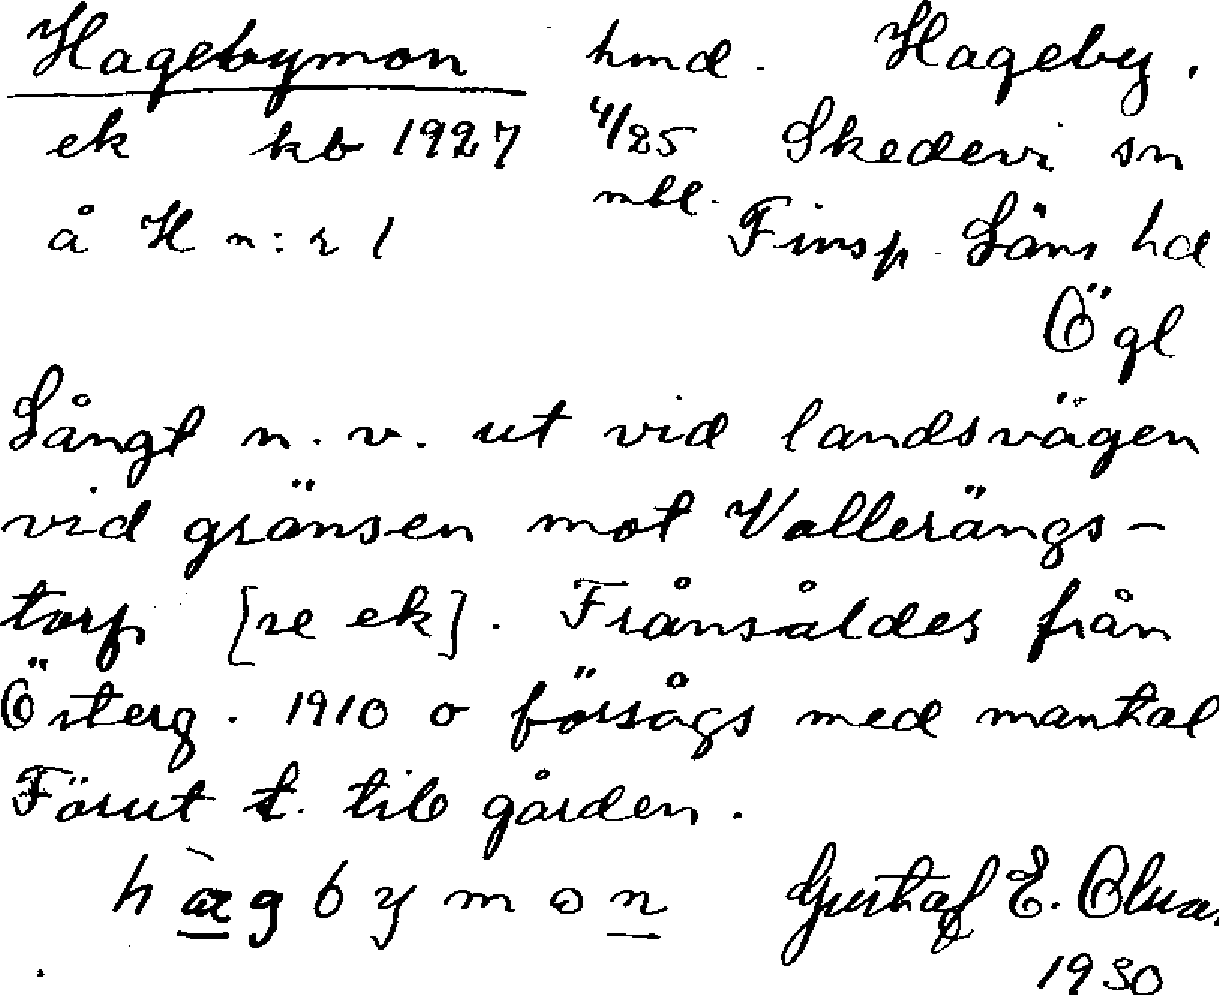 Hagebymon hmd. Hageby.
ek kb 1927 4/25 Skedevi sn
mbl.
å H n:r 1 Finsp. Läns hd
Ögl
Långt n.v. ut vid landsvägen
vid gränsen mot Vallerängs-
torp [se ek]. Frånsåldes från
Österg. 1910 o försågs med mantal
Förut t. till gården.
hàgbymon Gustaf E.
1930